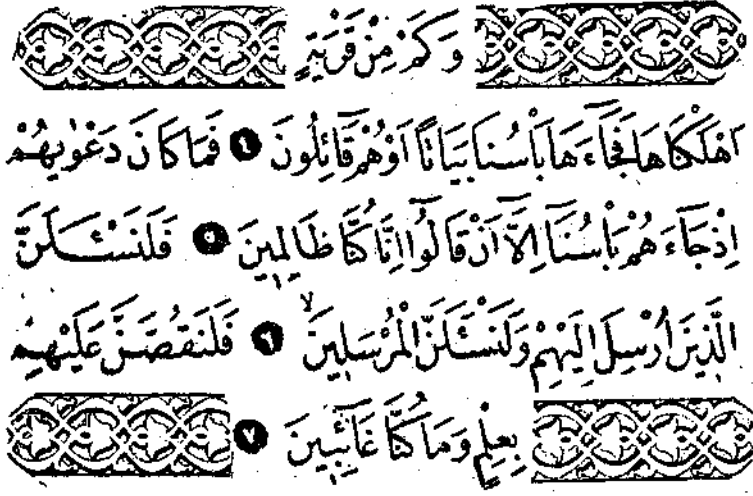 وَكَمْ مِنْ قَرْيَةٍ
اَهْلَكْنَاهَا فَجَٓاءَهَا بَأْسُنَا بَيَاتًا اَوْ هُمْ قَٓائِلُونَ ٤ فَمَا كَانَ دَعْوٰيهُمْ
اِذْ جَٓاءَهُمْ بَأْسُنَٓا اِلَّٓا اَنْ قَالُٓوا اِنَّا كُنَّا ظَالِمِينَ ٥ فَلَنَسْـَٔلَنَّ
الَّذِينَ اُرْسِلَ اِلَيْهِمْ وَلَنَسْـَٔلَنَّ الْمُرْسَلِينَۙ ٦ فَلَنَقُصَّنَّ عَلَيْهِمْ
بِعِلْمٍ وَمَا كُنَّا غَٓائِبِينَ ٧